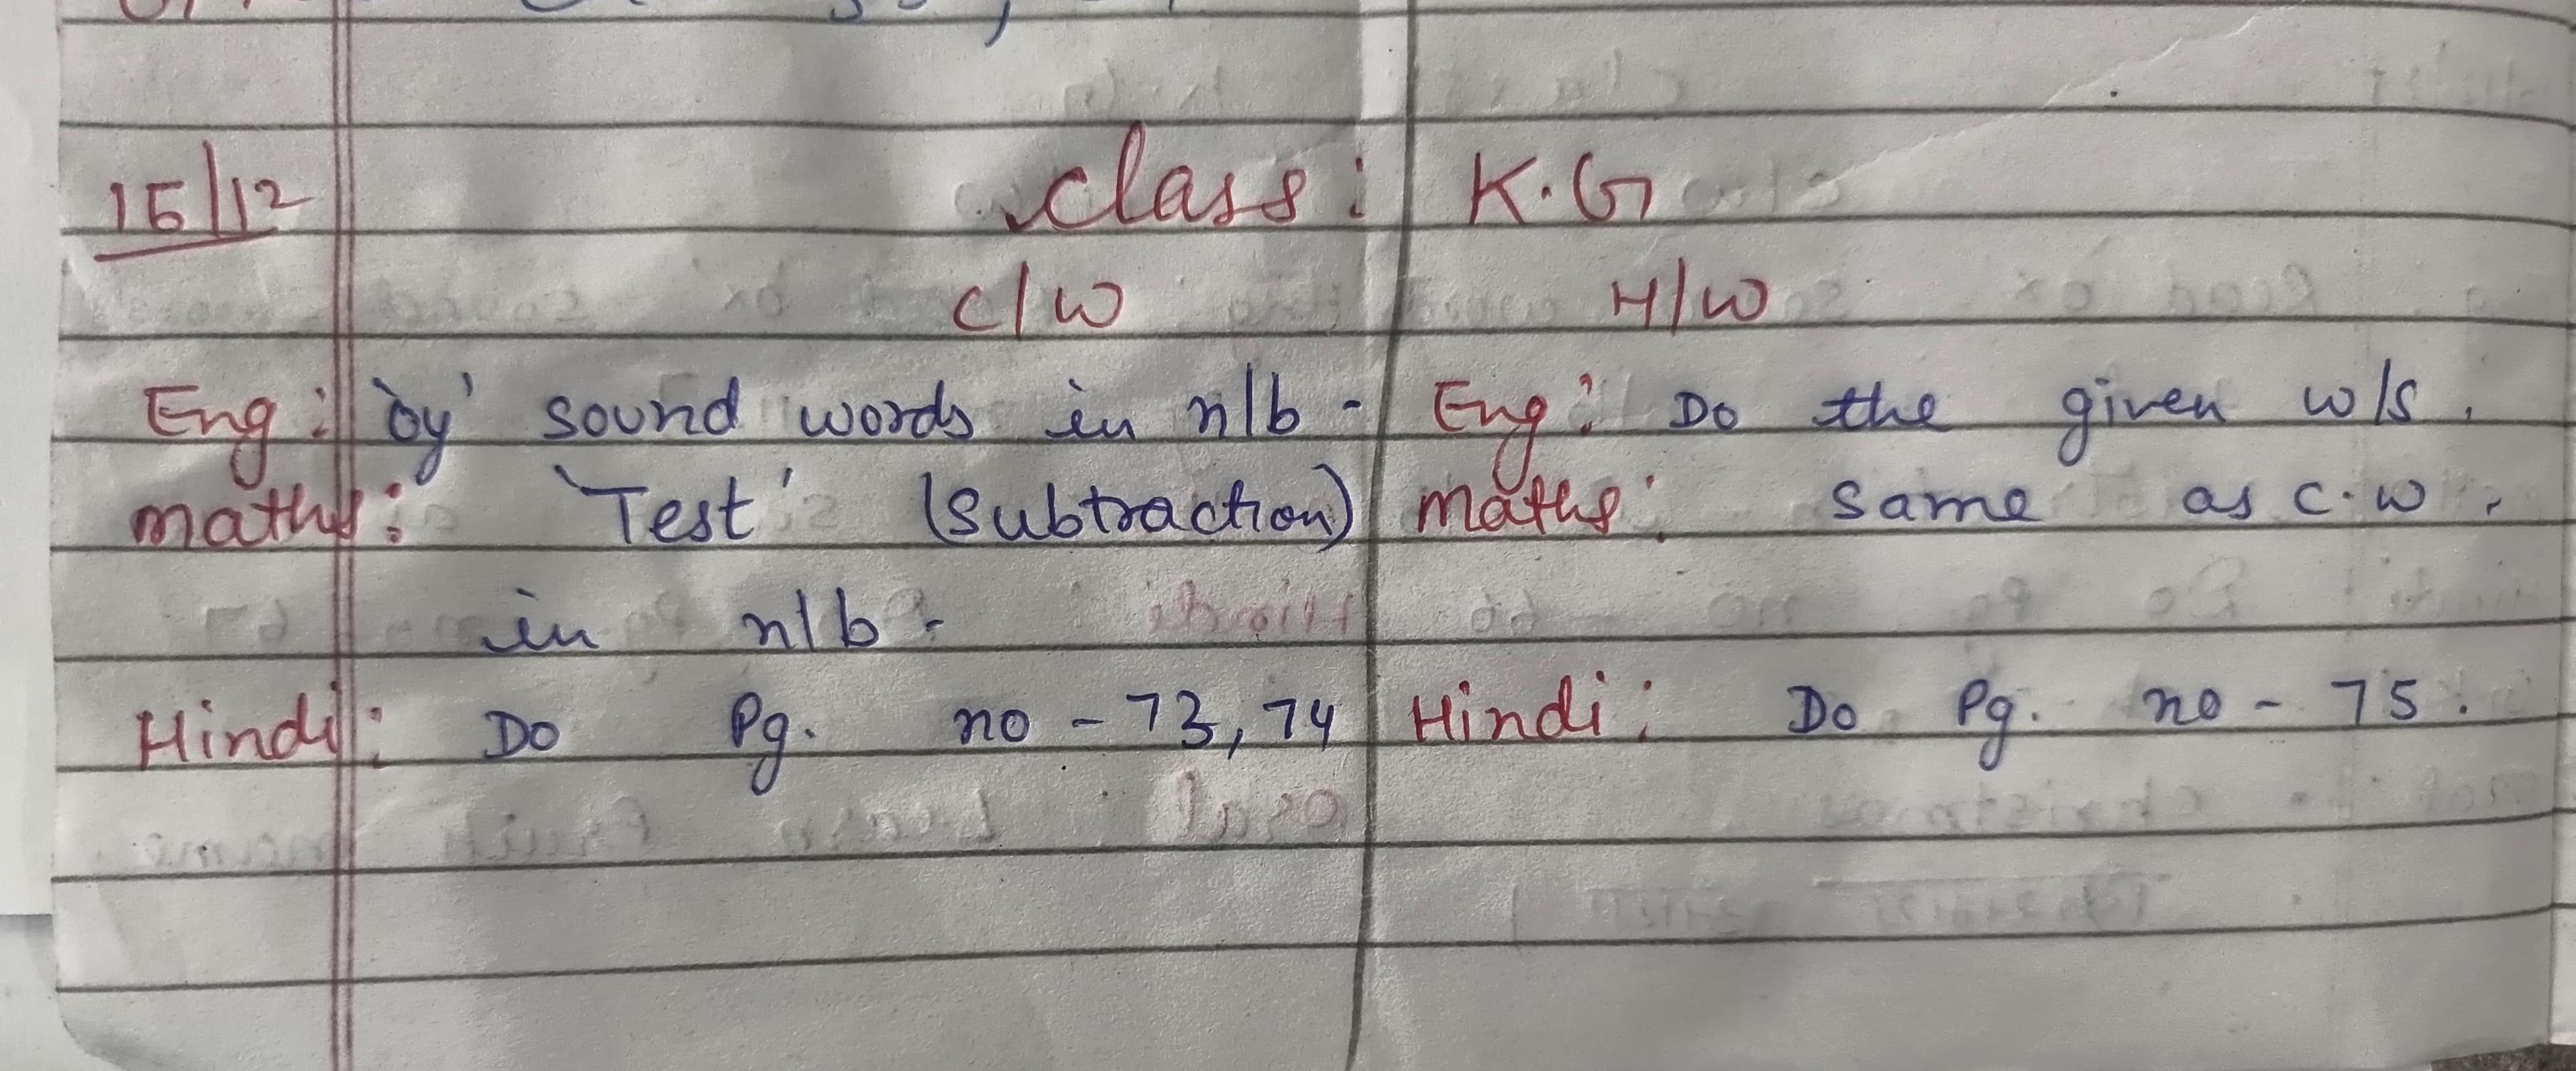 15/12 class: K.G
C/W H/W
Eng: 'oy' sound words in n/b - Eng: Do the given w/s.
maths: 'Test' (Subtraction) maths: same as c.w.
in n/b.
Hindi: Do Pg. no - 73, 74 Hindi: Do Pg. no - 75.